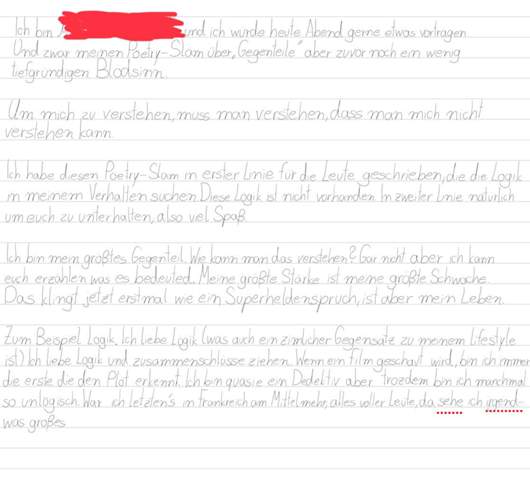 Ich bin
und ich würde heute Abend gerne etwas vortragen.
Und zwar meinen Poetry-Slam über „Gegenteile" aber zuvor noch ein wenig
tiefgründigen Blödsinn.
Um mich zu verstehen, muss man verstehen, dass man mich nicht
verstehen kann.
Ich habe diesen Poetry-Slam in erster Linie für die Leute geschrieben, die die Logik
in meinem Verhalten suchen. Diese Logik ist nicht vorhanden. In zweiter Linie natürlich
um euch zu unterhalten, also viel Spaß.
Ich bin mein größtes Gegenteil. Wie kann man das verstehen? Gar nicht aber ich kann
euch erzählen was es bedeuted. Meine größte Stärke ist meine größte Schwäche.
Das klingt jetzt erstmal wie ein Superheldenspruch, ist aber mein Leben.
Zum Beispiel Logik. Ich liebe Logik (was auch ein zimlicher Gegensatz zu meinem lifestyle
ist) Ich liebe Logik und zusammenschlüsse ziehen. Wenn ein Film geschaut wird, bin ich immer
die erste die den Plot erkennt. Ich bin quasie ein Dedektiv aber trozdem bin ich manchmal
so unlogisch. War ich letzten's in Frankreich am Mittelmehr, alles voller Leute, da sehe ich irgend-
was großes